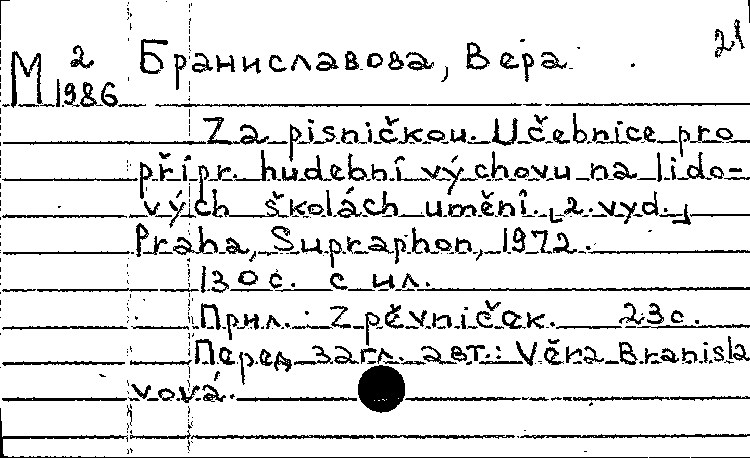 21
М 2/1986 Браниславова, Вера.
Za písničkou. Učebnice pro
přípr. hudební výchovu na lido-
vých školách umění. [2. vyd.]
Praha, Supraphon, 1972.
130 с. с ил.
Прил.: Zpěvníček. 23 с.
Перед загл. авт.: Věra Branisla
vová.